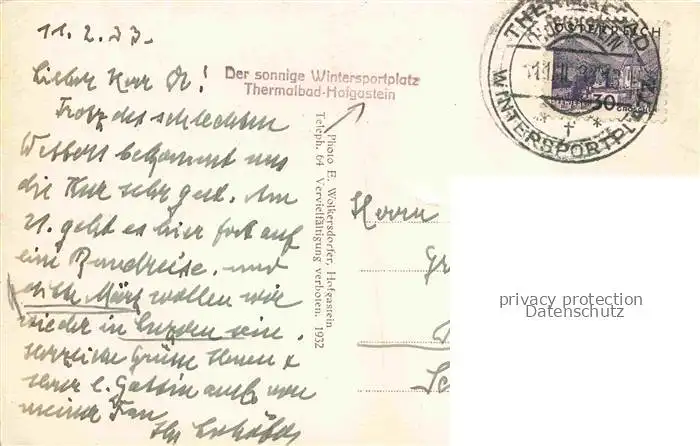 11. 2. 33.
Lieber Herr Dr!
Trotz des schlechten
Wetters bekommt uns
die Kur sehr gut. Am
21. geht es hier fort auf
eine Rundreise. und
März wollen wir
wieder in Luzern sein.
Herzliche Grüsse Ihnen &
Ihrer l. Gattin auch von
meiner Frau
Ihr
Der sonnige Wintersportplatz
Thermalbad-Hofgastein
Photo E. Wolkersdorfer, Hofgastein
Teleph. 64 Vervielfältigung verboten. 1932
THERMALBAD
HOFGASTEIN
WINTERSPORTPLATZ
ÖSTERREICH
30
Herrn
privacy protection
Datenschutz